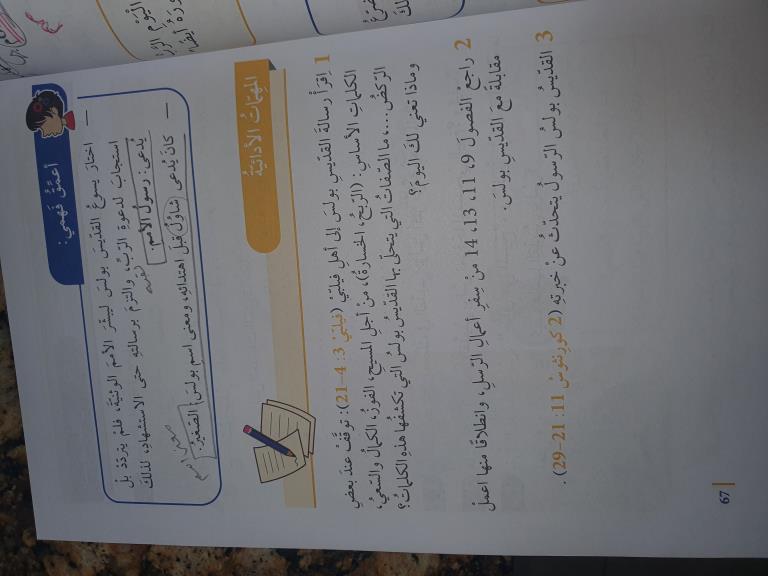 أعمّقُ فَهمي:
اختارَ يسوعُ القدّيسَ بولسَ ليبشّرَ الأممَ الوثنيّةَ، فلمْ يتردّدْ بلِ
استجابَ لدعوةِ الرّبِّ، والتزمَ برسالتِهِ حتّى الاستشهادِ، لذلكَ
يُدعى: رسولَ الأممِ.
كانَ يُدعى شاوُلُ قبلَ اهتدائِهِ، ومعنى اسمِ بولسَ: الصّغيرُ.
المهمّاتُ الأدائيّةُ
1 اِقرأْ رسالةَ القدّيسِ بولسَ إلى أهلِ فيلبّي (فيلبّي 3: 4-21): توقّفْ عندَ بعضِ
الكلماتِ الأساسِ: (الرّبحُ، الخسارةُ)، منْ أجلِ المسيحِ، الفوزُ، الكمالُ والسّعيُ،
الرّكضُ ...، ما الصّفاتُ الّتي يتحلّى بها القدّيسُ بولسُ الّتي تكشفُها هذهِ الكلماتُ؟
وماذا تعني لكَ اليومَ؟
2 راجعْ الفصولَ 9، 11، 13، 14 منْ سفرِ أعمالِ الرّسلِ، وانطلاقًا منها اعملْ
مقابلةً معَ القدّيسِ بولسَ.
3 القدّيسُ بولسُ الرّسولُ يتحدّثُ عنْ خبرتِهِ (2 كورنثوسُ 11: 21-29).
67